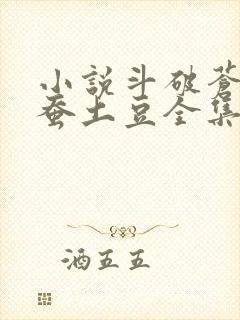 小説斗破蒼
蚕土豆全集
酒五五